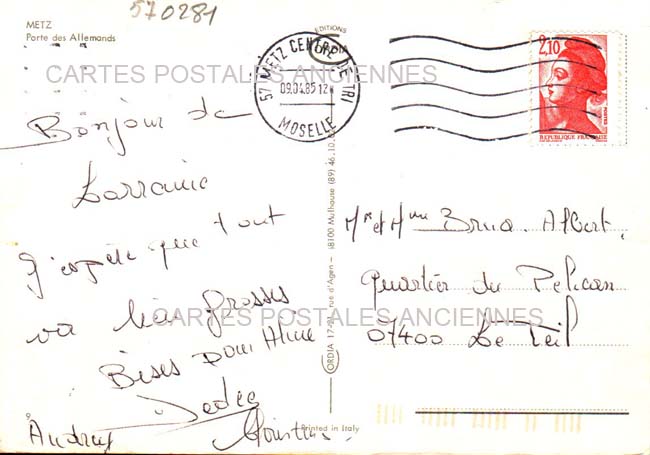 570281
METZ
Porte des Allemands
EDITIONS
ORDIA
57 METZ CENTRE DE TRI
09.04.85 12H
MOSELLE
2,10
POSTES
REPUBLIQUE FRANÇAISE
CARTES POSTALES ANCIENNES
Bonjour de
Lorraine
J'espère que tout
va bien grosses
Bises pour Aline
Andrey
Mr et Mme Brua Albert
Quartier du Pelican
07400 Le Teil
CARTES POSTALES ANCIENNES
rue d'Agen - 68100 Mulhouse (89) 46.10
Printed in Italy